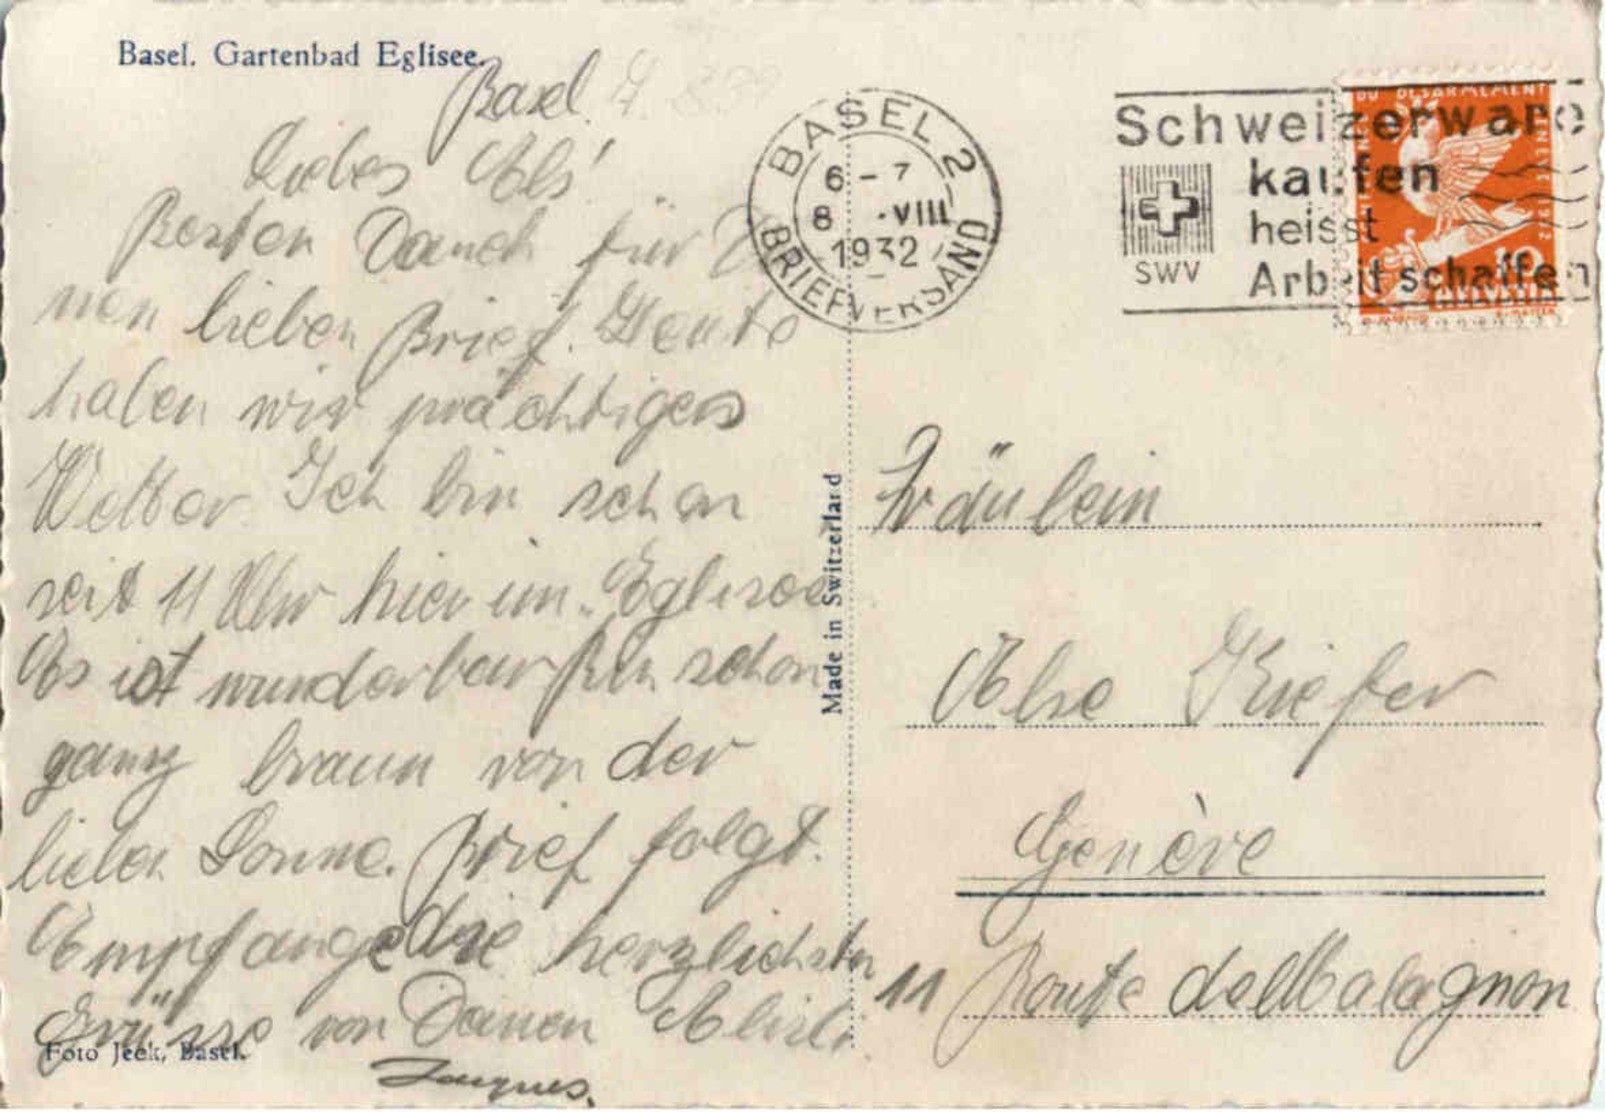 Basel. Gartenbad Eglisee.
Basel.
Liebes Els!
Besten Dank für
nen lieben Brief. Heute
haben wir prächtiges
Wetter. Ich bin schon
seit 11 Uhr hier im Eglisee
Es ist wunderbar Bin schon
ganz braun von der
lieben Sonne. Brief folgt.
Empfange die herzlichsten
Grüsse von Deinen
Jacques.
Foto Jeck, Basel.
Made in Switzerland
BASEL 2
6-7
8 .VIII
1932
BRIEFVERSAND
Schweizerware
kaufen
heisst
Arbeit schaffen
SWV
DU DÉSARMEMENT
10
HELVETIA
Fräulein
Else Kiefer
Genève
11 Route de Malagnon